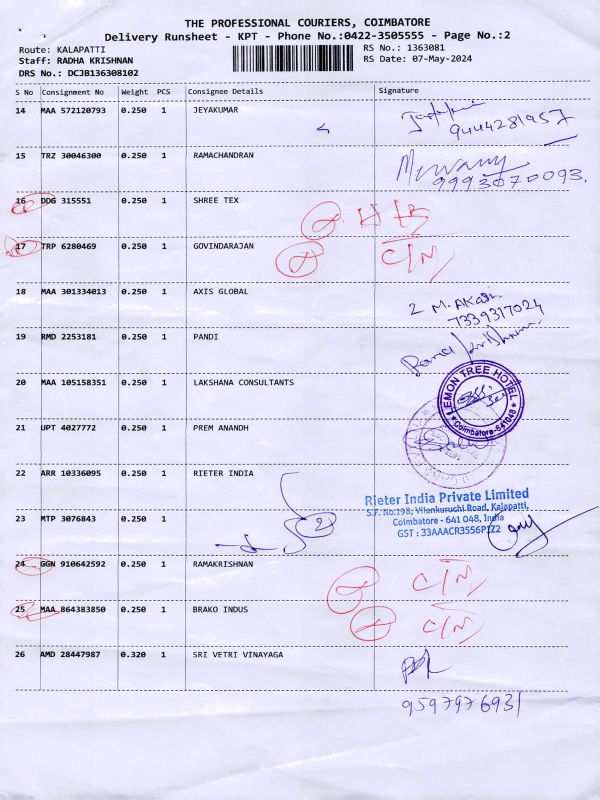 THE PROFESSIONAL COURIERS, COIMBATORE
Delivery Runsheet - KPT - Phone No.:0422-3505555 - Page No.:2
Route: KALAPATTI
Staff: RADHA KRISHNAN
DRS No.: DCJB136308102
RS No.: 1363081
RS Date: 07-May-2024
S No Consignment No Weight PCS Consignee Details Signature
14 MAA 572120793 0.250 1 JEYAKUMAR
9444281957
15 TRZ 30046300 0.250 1 RAMACHANDRAN
9993070093.
16 DDG 315551 0.250 1 SHREE TEX
17 TRP 6280469 0.250 1 GOVINDARAJAN C/N
18 MAA 301334013 0.250 1 AXIS GLOBAL
2 M. AKash
7339317024
19 RMD 2253181 0.250 1 PANDI
20 MAA 105158351 0.250 1 LAKSHANA CONSULTANTS
LEMON TREE HOTEL
Coimbatore-641048
21 UPT 4027772 0.250 1 PREM ANANDH
22 ARR 10336095 0.250 1 RIETER INDIA
Rieter India Private Limited
S.F. No:198, Vilankuruchi Road, Kalapatti,
23 MTP 3076843 0.250 1 2
Coimbatore - 641 048, India
GST : 33AAACR3556P1Z2
24 GGN 910642592 0.250 1 RAMAKRISHNAN C/N
25 MAA 864383850 0.250 1 BRAKO INDUS C/N
26 AMD 28447987 0.320 1 SRI VETRI VINAYAGA
9597976931